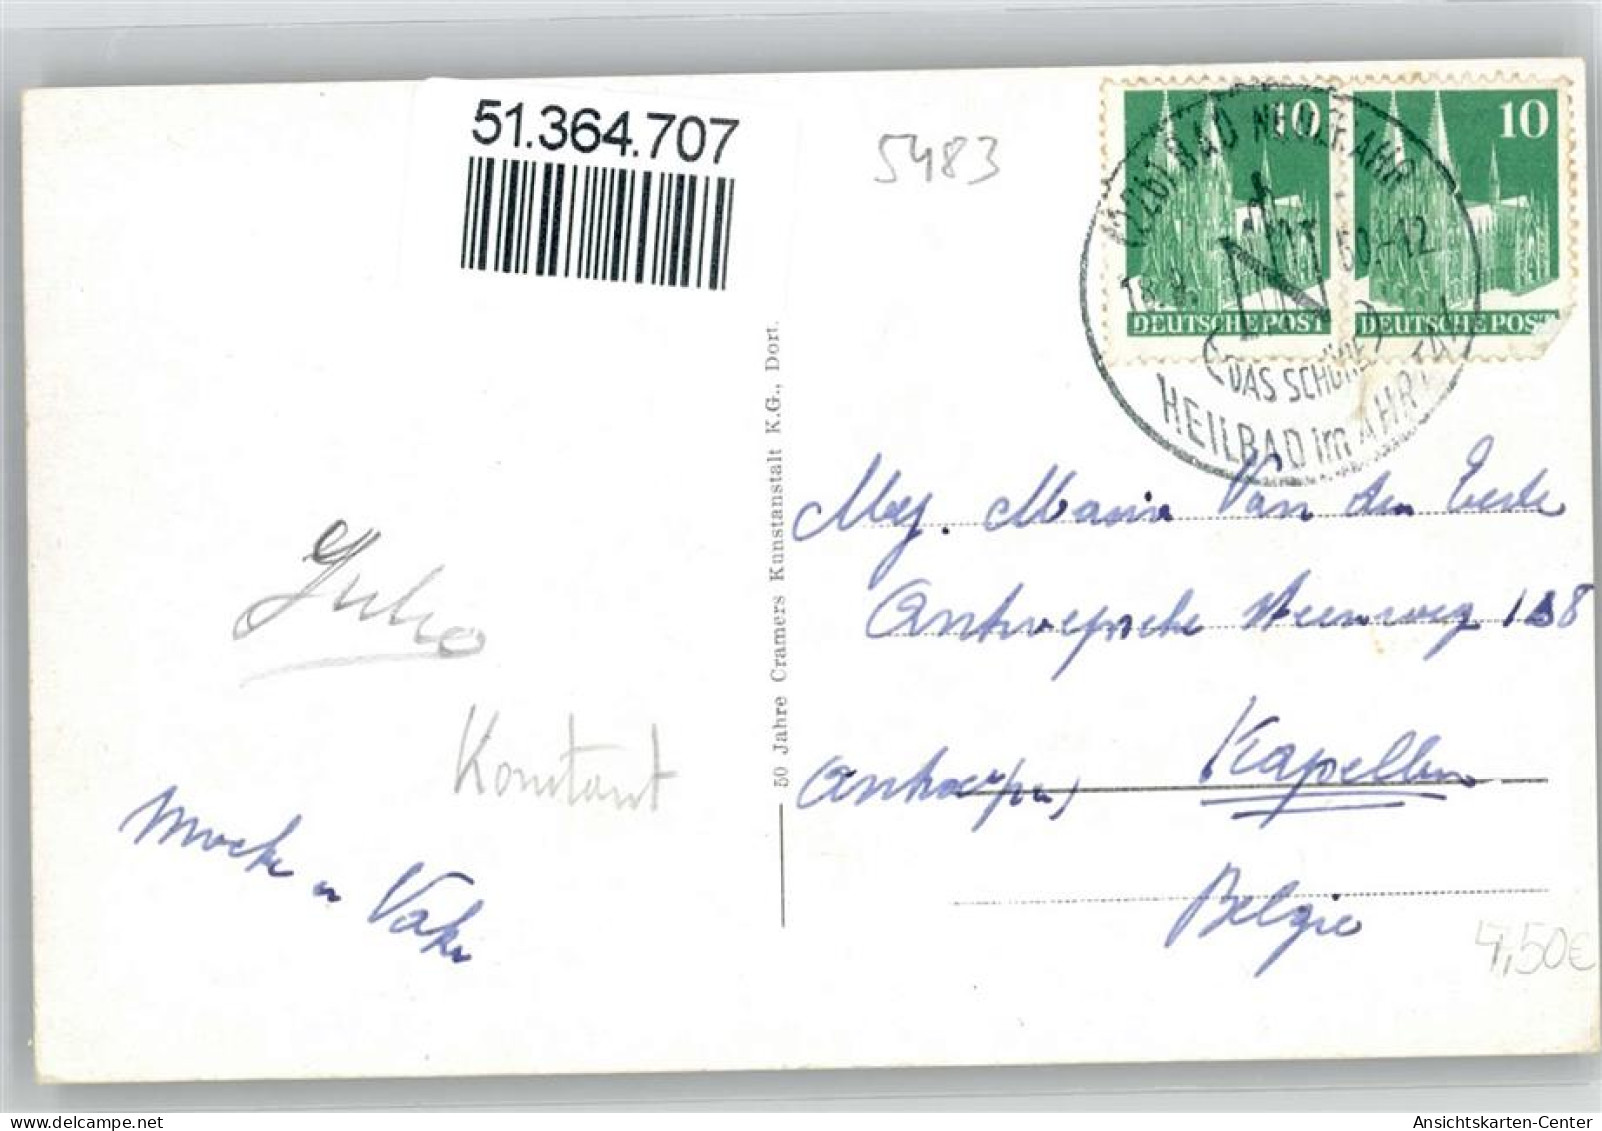 51.364.707
5483
10
10
BAD NEUENAHR
50.-12
DEUTSCHE POST
DEUTSCHE POST
DAS SCHÖNE
HEILBAD im AHRTAL
50 Jahre Cramers Kunstanstalt K.G., Dort.
Mej. Maria Van den Eede
Antwerpsche steenweg 138
Kapellen
(Antwerpen)
Belgie
Julio
Konstant
Moeke en Vake
4,50€
Ansichtskarten-Center